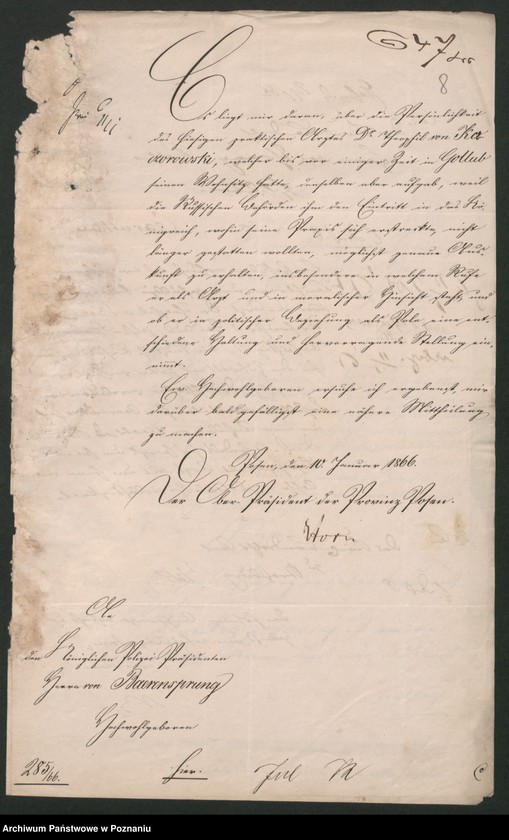 647
8
Es liegt mir daran, über die Persönlichkeit
des hiesigen praktischen Arztes Dr. Theophil von Kac
zorowski, welcher bis vor einiger Zeit in Gollub
seinen Wohnsitz hatte, denselben aber aufgab, weil
die Russischen Behörden ihm den Eintritt in das Kö-
nigreich, wohin seine Praxis sich erstreckte, nicht
länger gestatten wollten, möglichst genaue Aus-
kunft zu erhalten, insbesondere in welchem Rufe
er als Arzt und in moralischer Hinsicht steht, und
ob er in politischer Beziehung als Pole eine ent-
schiedene Haltung und hervorragende Stellung ein-
nimmt.
Ew. Hochwohlgeboren ersuche ich ergebenst, mir
darüber baldgefälligst eine nähere Mittheilung
zu machen.
Posen, den 10. Januar 1866.
Der Ober-Präsident der Provinz Posen.
Horn
An
den Königlichen Polizei-Präsidenten
Herrn von Baerensprung
Hochwohlgeboren
hier.
285/66.
Archiwum Państwowe w Poznaniu